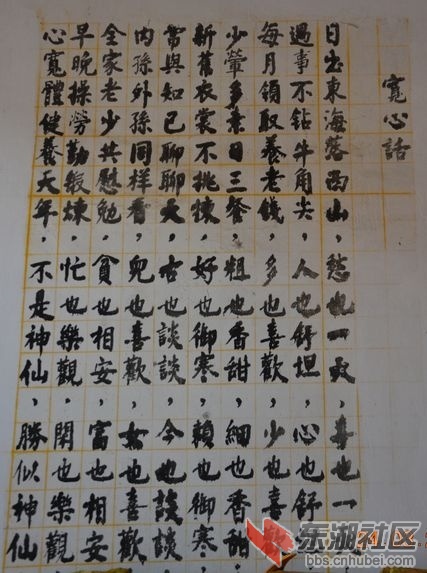 寬心話
日出東海落西山，愁也一天，喜也一
遇事不钻牛角尖，人也舒坦，心也舒
每月領取養老錢，多也喜歡，少也喜
少葷多素日三餐，粗也香甜，細也香甜，
新舊衣裳不挑揀，好也御寒，賴也御寒，
當與知己聊聊天，古也談談，今也談談，
内孫外孫同樣看，兒也喜歡，女也喜歡，
全家老少共慰勉，貧也相安，富也相安，
早晚操勞勤鍛煉，忙也樂觀，閑也樂觀
心寬體健養天年，不是神仙，勝似神仙
东湖社区
bbs.cnhubei.com